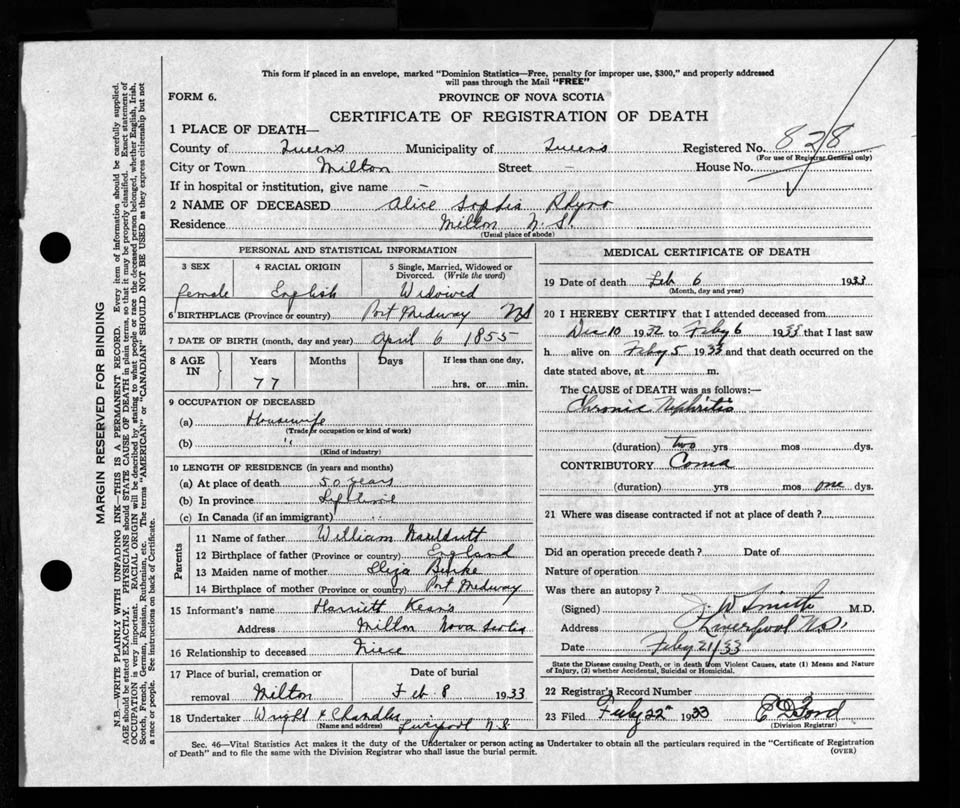 This form if placed in an envelope, marked "Dominion Statistics—Free, penalty for improper use, $300," and properly addressed
will pass through the Mail "FREE"
FORM 6.
PROVINCE OF NOVA SCOTIA
CERTIFICATE OF REGISTRATION OF DEATH
1 PLACE OF DEATH—
County of Queens Municipality of Queens Registered No. 828
(For use of Registrar General only)
City or Town Milton Street — House No.
If in hospital or institution, give name —
2 NAME OF DECEASED Alice Sophia Rhyno
Residence Milton N.S.
(Usual place of abode)
PERSONAL AND STATISTICAL INFORMATION
3 SEX 4 RACIAL ORIGIN 5 Single, Married, Widowed or
Divorced. (Write the word)
female English Widowed
6 BIRTHPLACE (Province or country) Port Medway NS
7 DATE OF BIRTH (month, day and year) April 6 1855
8 AGE IN Years Months Days If less than one day,
77 hrs. or min.
9 OCCUPATION OF DECEASED
(a) Housewife
(Trade or occupation or kind of work)
(b) "
(Kind of industry)
10 LENGTH OF RESIDENCE (in years and months)
(a) At place of death 50 years
(b) In province Lifetime
(c) In Canada (if an immigrant)
Parents
11 Name of father William
12 Birthplace of father (Province or country) England
13 Maiden name of mother Eliza Burke
14 Birthplace of mother (Province or country) Port Medway
15 Informant's name Harriett Keans
Address Milton Nova Scotia
16 Relationship to deceased Niece
17 Place of burial, cremation or Date of burial
removal Milton Feb 8 1933
18 Undertaker Wright & Chandler
(Name and address) Liverpool N.S
MEDICAL CERTIFICATE OF DEATH
19 Date of death Feb 6 1933
(Month, day and year)
20 I HEREBY CERTIFY that I attended deceased from
Dec 10 1932 to Feby 6 1933 that I last saw
h alive on Feby 5 1933 and that death occurred on the
date stated above, at m.
The CAUSE of DEATH was as follows:—
Chronic Nephritis
(duration) two yrs mos dys.
CONTRIBUTORY Coma
(duration) yrs mos one dys.
21 Where was disease contracted if not at place of death?
Did an operation precede death? Date of
Nature of operation
Was there an autopsy?
(Signed) J. W Smith M.D.
Address Liverpool N.S.
Date Feby 21/33
State the Disease causing Death, or in death from Violent Causes, state (1) Means and Nature
of Injury, (2) whether Accidental, Suicidal or Homicidal.
22 Registrar's Record Number
23 Filed Feby 22nd 1933 Ford
(Division Registrar)
Sec. 46—Vital Statistics Act makes it the duty of the Undertaker or person acting as Undertaker to obtain all the particulars required in the "Certificate of Registration
of Death" and to file the same with the Division Registrar who shall issue the burial permit. (OVER)
MARGIN RESERVED FOR BINDING
N.B.—WRITE PLAINLY WITH UNFADING INK—THIS IS A PERMANENT RECORD. Every item of information should be carefully supplied.
AGE should be stated EXACTLY. PHYSICIANS should STATE CAUSE OF DEATH in plain terms, so that it may be properly classified. Exact statement of
OCCUPATION is very important. RACIAL ORIGIN will be described by stating to what people or race the deceased person belonged, whether English, Irish,
Scotch, French, German, Russian, Ruthenian, etc. The terms "AMERICAN" or "CANADIAN" SHOULD NOT BE USED as they express citizenship but not
a race or people. See instructions on back of Certificate.